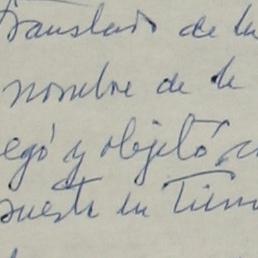 translado de la
nombre de la
egó y objetó
puesta en Tierra